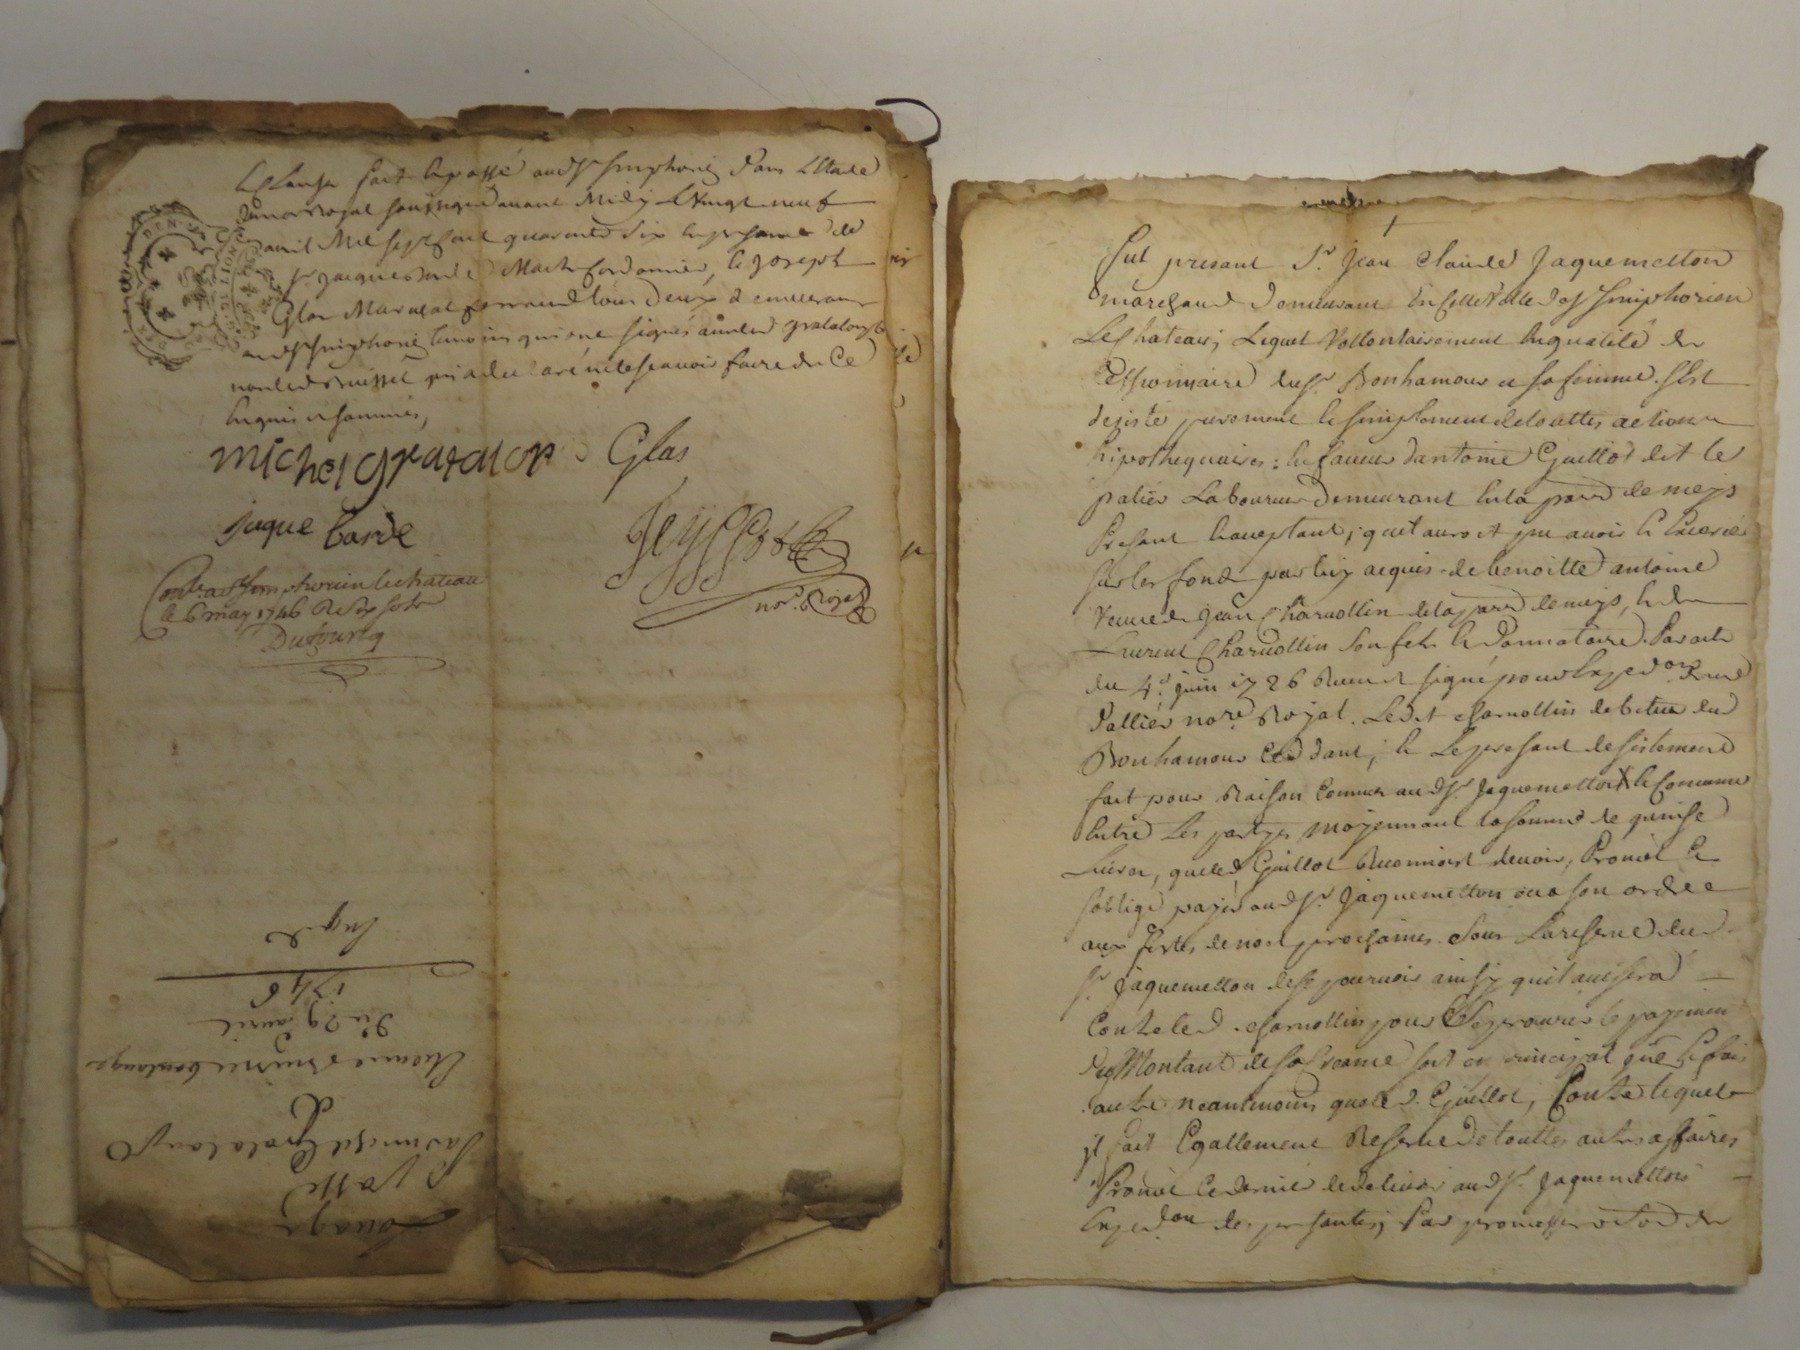 & Clauses fait & passé aud St Simphorien dans l'Etude
du no.re Royal soussigné avant Midy le Vingt neuf
avril Mil sept cent quarante six en presence de
Sr. Jacques Barde Maitre Cordonnier, & Joseph
Glas Marechal ferrand tous deux demeurants
aud St Simphorien temoins qui ont signés avec led gratalong &
non led Buisset qui a declaré ne le scavoir faire de Ce
Enquis & sommés,
michel gratalon Glas
jaque barde
Jeyssot
no.re Royal
Con.lé a St Simphorien le chateau
le 6 may 1746 Reçu
Dufourcq
Louage
passé
Par michel Gratalong
a
Etienne Buisset boulanger
Du 29 avril
1746
Exp.é
Fut present Sr. Jean Claude Jaquemetton
marchand demeurant En Cette Ville de St Simphorien
Le Chateau, Lequel Vollontairement En qualité de
Cessionnaire du Sr. Bonhamour et sa femme. S'est
desisté purement & simplement de touttes actions
hipothequaires; En faveur d'antoine Guillot dit le
palier Laboureur demeurant En la parr.e de meys
Present & acceptant, qu'il auroit pu avoir & Exercer
sur les fonds par luy acquis de benoitte antoine
Veuve de Jean Charnollin de la parr.e de meys, & de
Laurent Charnollin son fils & donnataire. Par acte
du 4e. juin 1726 Reçu et signé pour Exped.on
Pallier no.re Royal. Ledit charnollin debiteur dud
Bonhamour Ceddant, & Le present desistement
fait pour Raison Connue aud Sr. Jaquemetton & Convenue
Entre Les partyes moyennant la somme de quinse
Livres, que led Guillot Reconnoist devoir, Promet &
s'oblige payer aud Sr. Jaquemetton ou a son ordre
aux festes de noel prochaines. Sous La reserve dud
Sr. Jaquemetton de se pourvoir ainsy qu'il avisera
Contre led. charnollin pour Se procurer le payement
du Montant de sa Creance soit en principal que & frais
autre neantmoins que led. Guillot, Contre lequel
il fait Egallement Reserve de touttes autres affaires
Promet Ce dernier de delivrer aud Sr. Jaquemetton
Exped.on des presentes; Par promesses